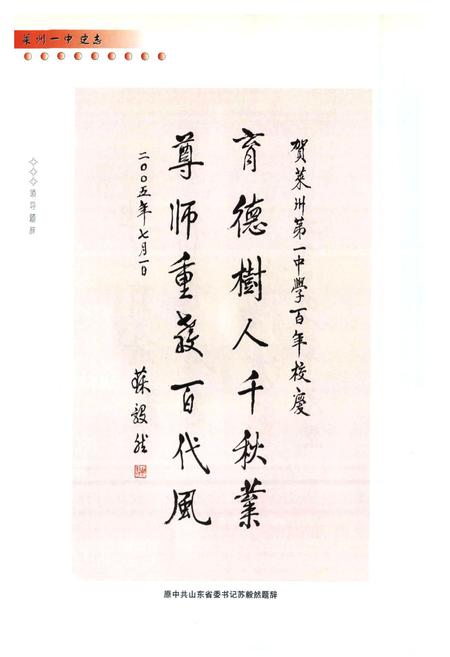 莱州一中史志
领导题辞
贺莱州第一中學百年校慶
育德樹人千秋業
尊师重教百代風
二00五年七月一日
蘇毅然
原中共山东省委书记苏毅然题辞